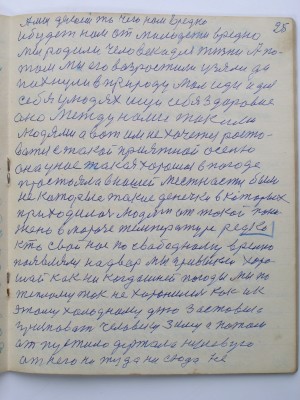 25
А мы делаем то чего нам вредно
и будет нам от милодети вредно
мы родили человека для жизни А по-
том мы его возростили узяли да
пихнули в природу мол иди и для
себя у людях ищи себя здоровие
оно между нами такими
людями а вот им не хочется расто-
ватся с такой приятной осеню
она у нас такая хорошая в погоде
простояла в нашей местности были
некоторые такие денечки в которых
приходилось людям от такой пони-
жено в морозе температуре редко
кто свой нос по свободному время
появляли на двор мы привыкли к хоро-
шей как ни когда шней погоди мы по
теплому так не хоронимся как им
этому холодному дню Заставило
приповать человеку Зиму а потом
от пустило держала на
от него то туда на сюда не